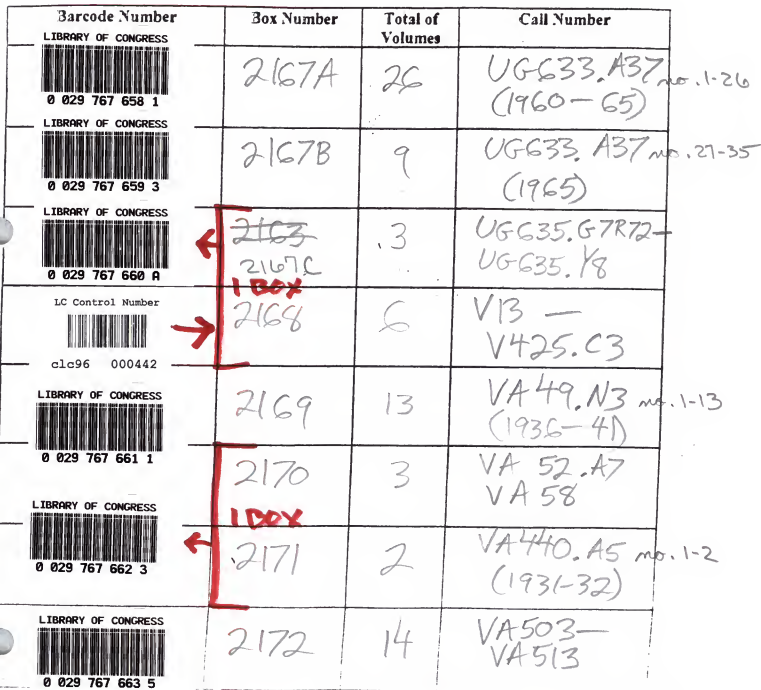 Barcode Number Box Number Total of Volumes Call Number
LIBRARY OF CONGRESS
0 029 767 658 1
2167A 26 UG633.A37 no. 1-26
(1960-65)
LIBRARY OF CONGRESS
0 029 767 659 3
2167B 9 UG633.A37 no. 27-35
(1965)
LIBRARY OF CONGRESS
0 029 767 660 A
2163 3 UG635.G7R72-
2167C UG635.Y8
1 BOX
LC Control Number
clc96 000442
2168 6 V13 —
V425.C3
LIBRARY OF CONGRESS
0 029 767 661 1
2169 13 VA49.N3 no. 1-13
(1936-41)
2170 3 VA 52.A7
VA 58
1 BOX
LIBRARY OF CONGRESS
0 029 767 662 3
2171 2 VA440.A5 no. 1-2
(1931-32)
LIBRARY OF CONGRESS
0 029 767 663 5
2172 14 VA503-
VA513